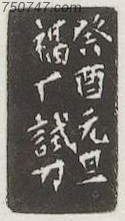 750747.com
癸酉元旦
福厂試刀